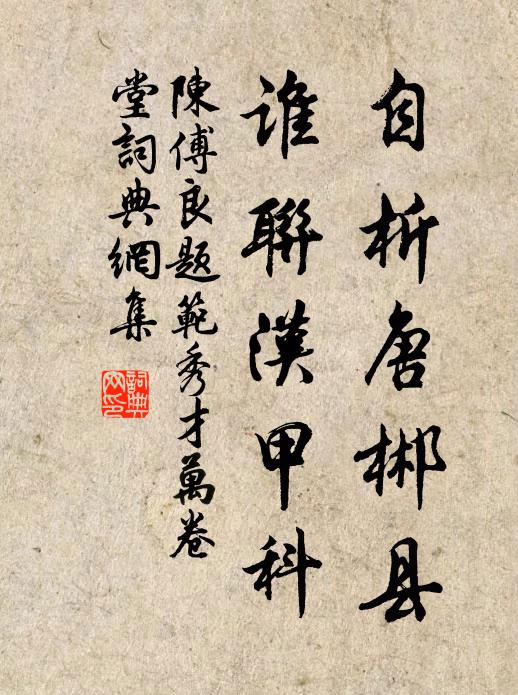 自析唐郴县
谁聯漢甲科
陳傅良题範秀才萬卷
堂詞典網集
詞典网印